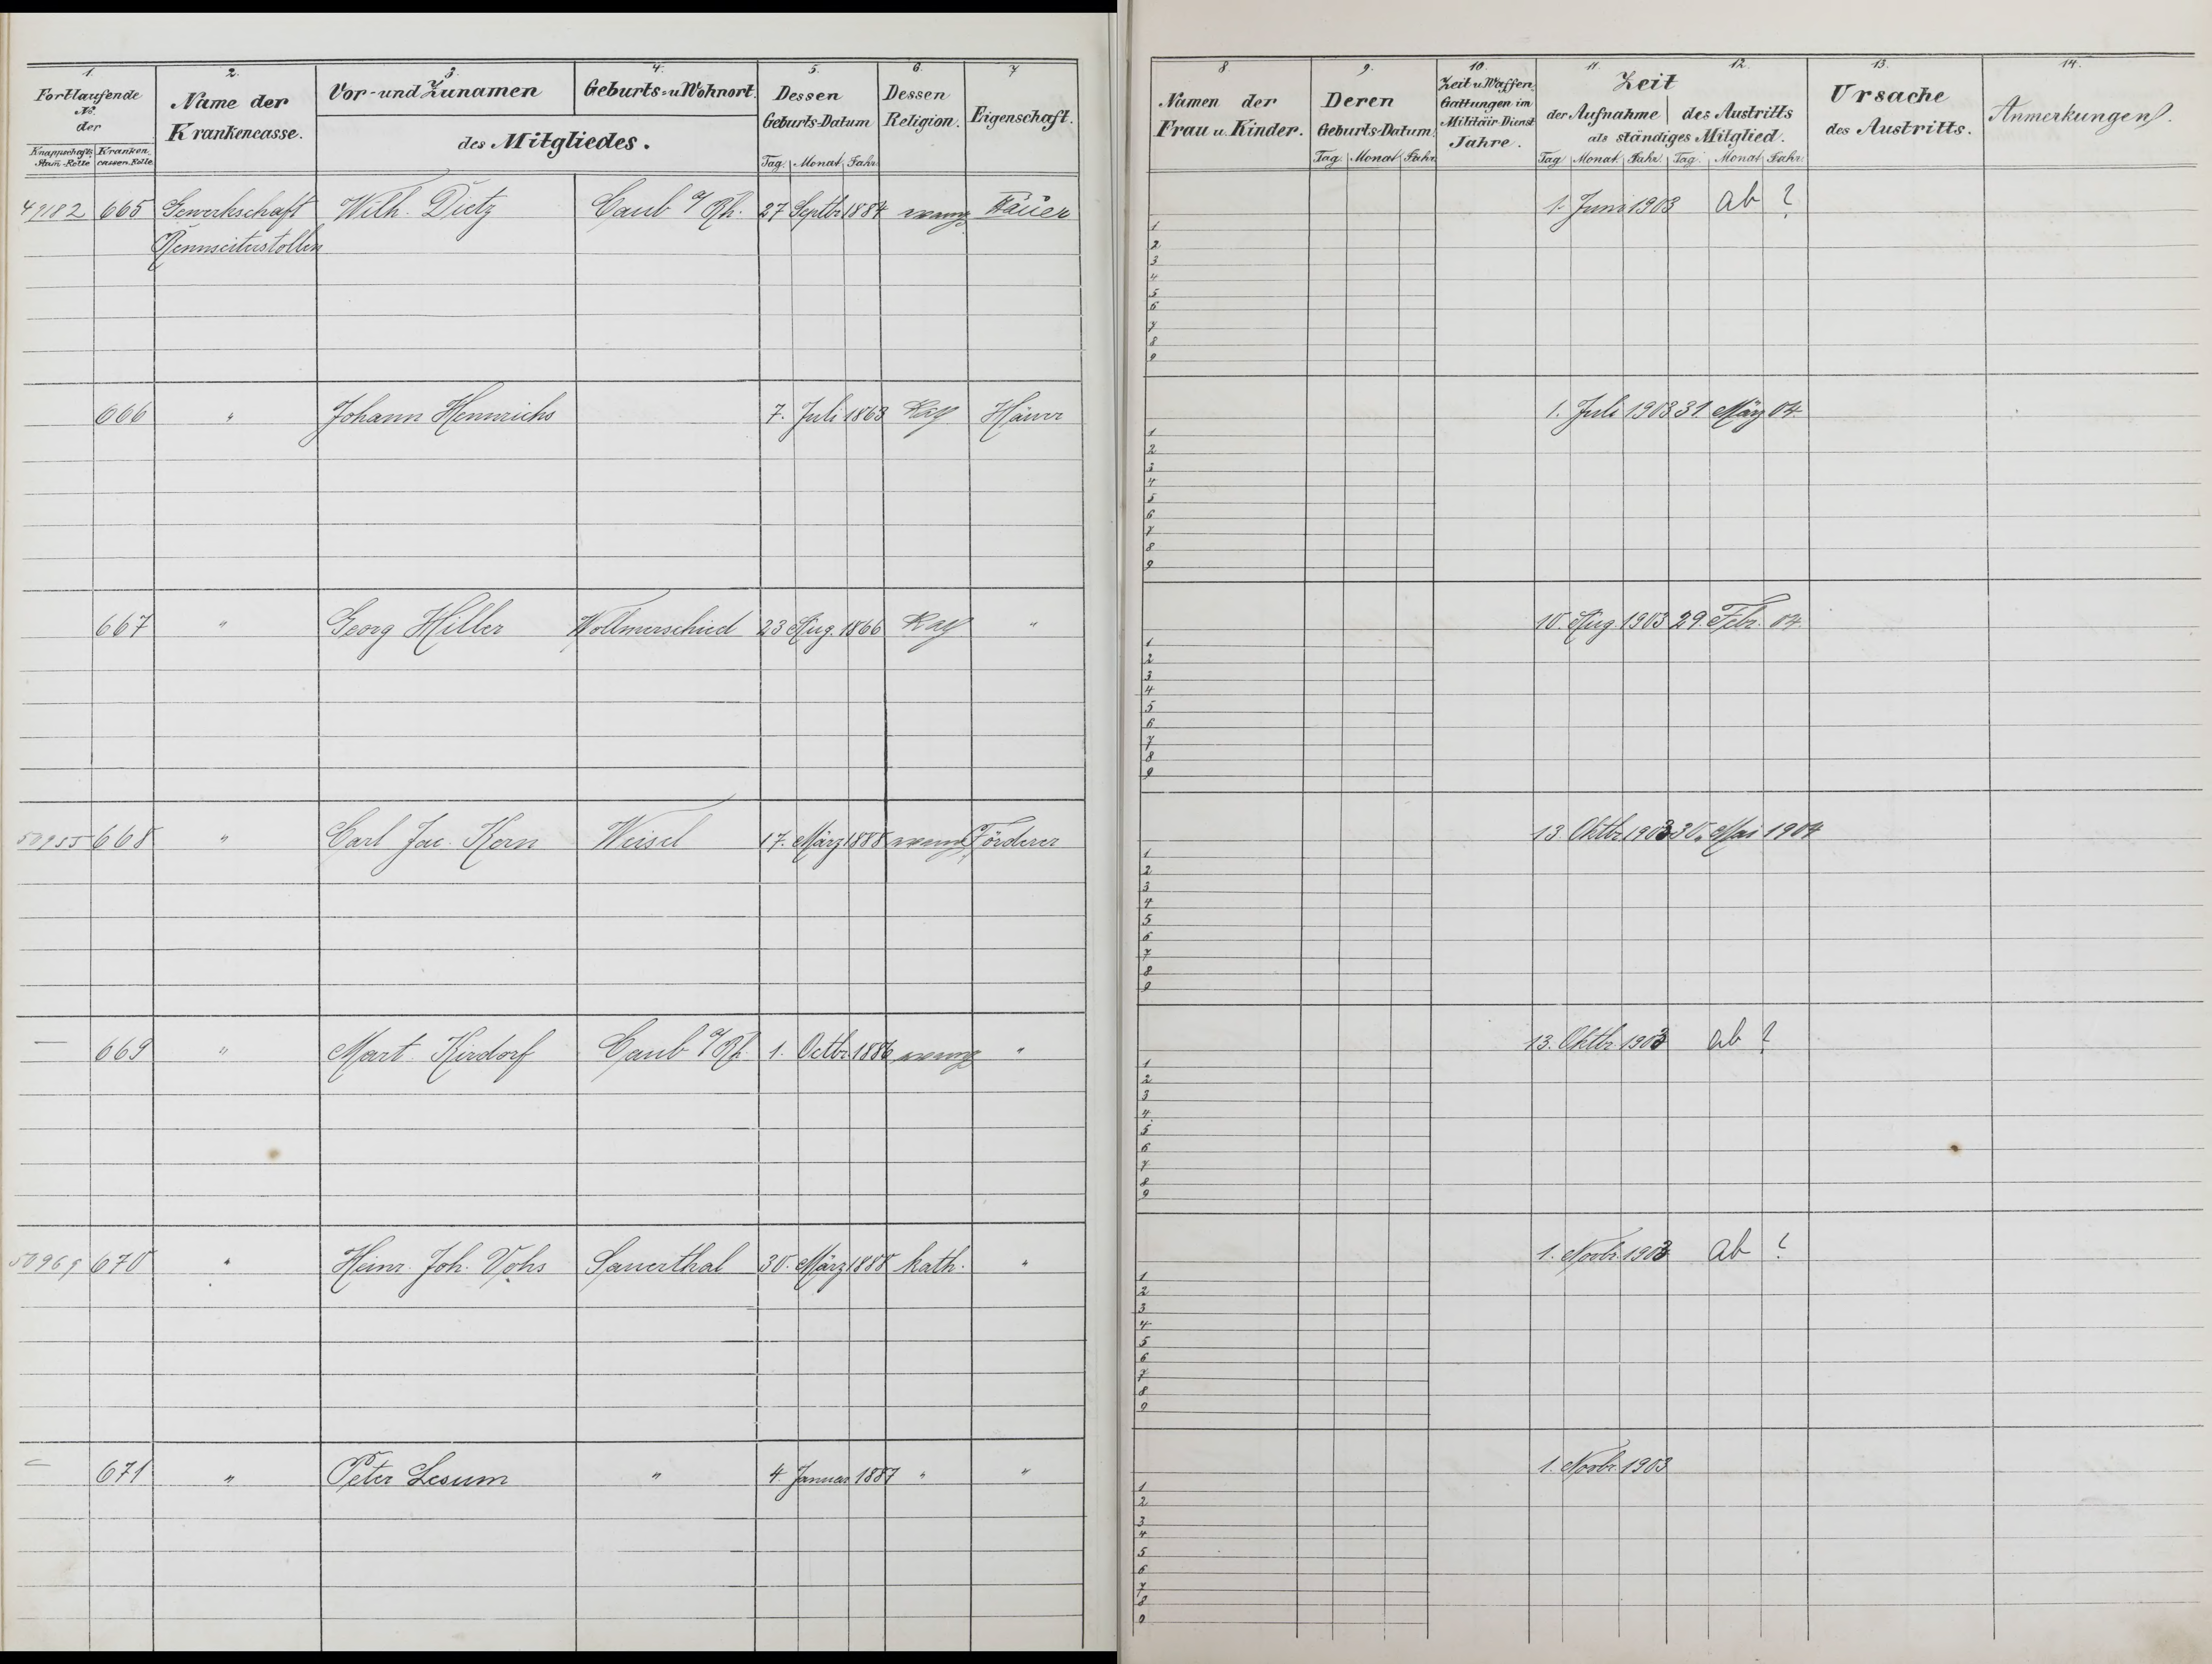 1. 2. 3. 4. 5. 6. 7
Fortlaufende No. der
Knappschafts Stam-Rolle Kranken cassen Rolle
Name der Krankencasse.
Vor- und Zunamen Geburts- u Wohnort.
des Mitgliedes.
Dessen Geburts-Datum
Tag Monat Jahr
Dessen Religion.
Eigenschaft.
49182 665 Gewerkschaft Wilh. Dietz Caub a/Rh. 27 Septbr 1884 evang Häuer
Rennseiterstollen
666 " Johann Hennrichs 7. Juli 1863 Häuer
667 " Georg Hiller Wollmerschied 23 Aug. 1866 "
50955 668 " Carl Jac. Kern Weisel 17. März 1888 evang Förderer
— 669 " Mart. Kirdorf Caub a/Rh. 1. Octbr. 1886 evang "
50969 670 " Heinr. Joh. Vohs Sauerthal 30. März 1888 kath. "
— 671 " Peter Lesum " 4. Januar 1887 " "
8 9. 10. 11. 12. 13. 14.
Namen der Frau u. Kinder.
Deren Geburts-Datum.
Tag Monat Jahr
Zeit u Waffen Gattungen im Militäir-Dienst Jahre.
Zeit
der Aufnahme des Austritts
als ständiges Mitglied.
Tag Monat Jahr. Tag. Monat Jahr.
Ursache des Austritts.
Anmerkungen.
1. Juni 1903 ab ?
1
2
3
4
5
6
7
8
9
1. Juli 1903 31. März 04.
1
2
3
4
5
6
7
8
9
10. Aug. 1903 29. Febr. 04.
1
2
3
4
5
6
7
8
9
13. Oktbr. 1903 30. Mai 1904
1
2
3
4
5
6
7
8
9
13. Oktbr. 1903 ab ?
1
2
3
4
5
6
7
8
9
1. Novbr. 1903 ab ?
1
2
3
4
5
6
7
8
9
1. Novbr. 1903
1
2
3
4
5
6
7
8
9